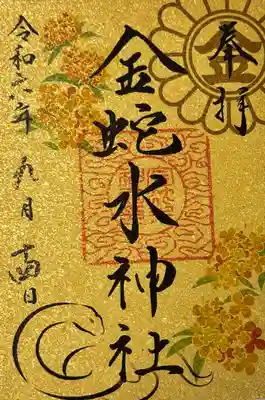 奉拝
金
金蛇水神社
令和六年九月 日